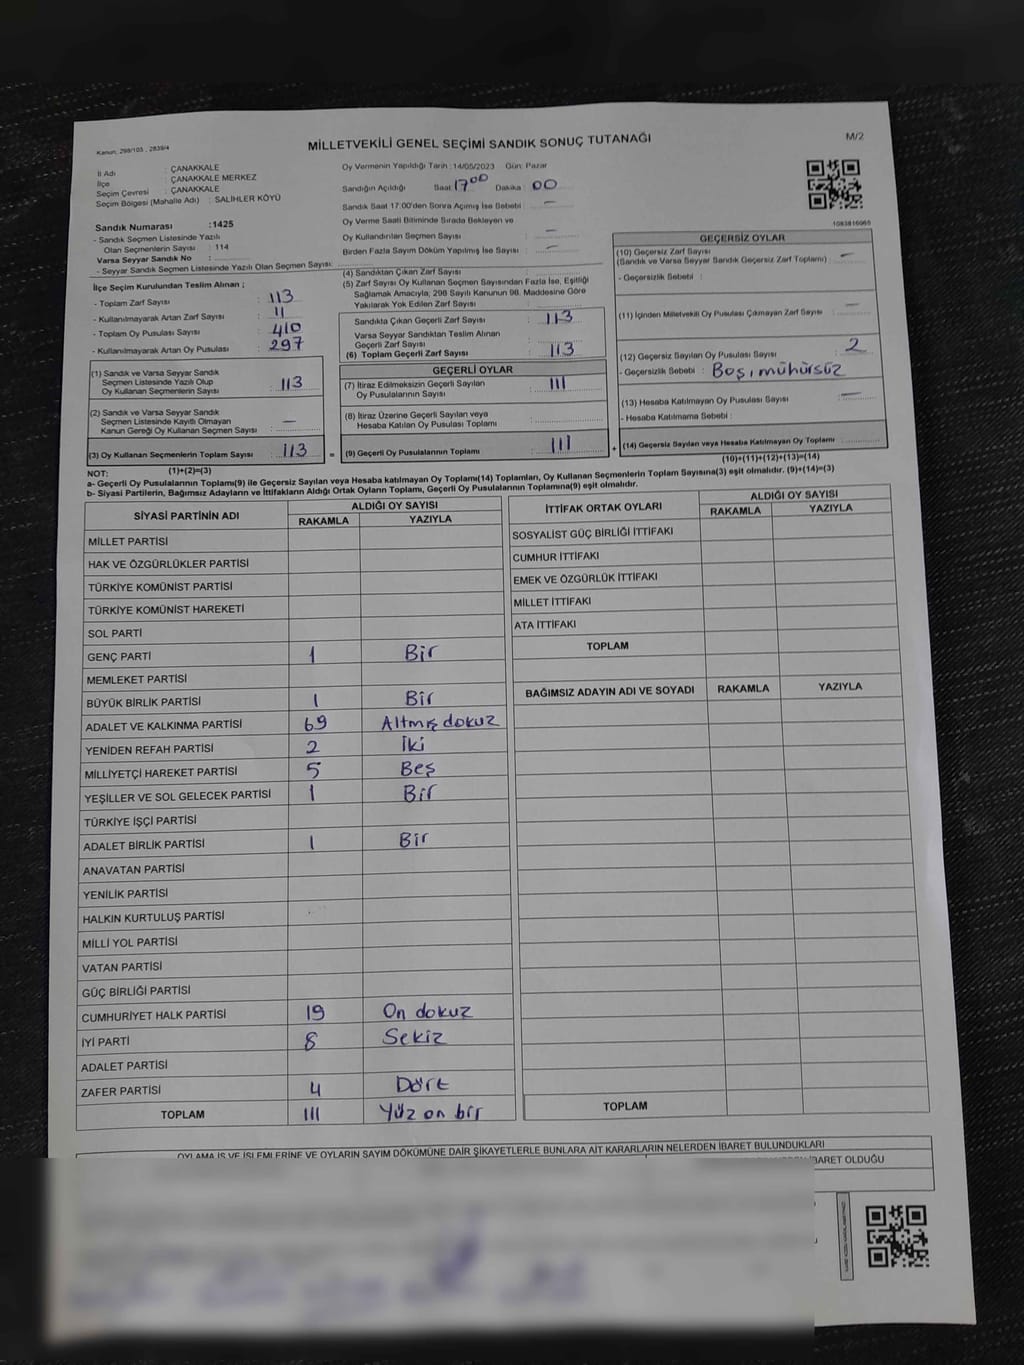 Kanun: 298/103 , 2839/4
MİLLETVEKİLİ GENEL SEÇİMİ SANDIK SONUÇ TUTANAĞI
M/2
İl Adı : ÇANAKKALE
İlçe : ÇANAKKALE MERKEZ
Seçim Çevresi : ÇANAKKALE
Seçim Bölgesi (Mahalle Adı) : SALİHLER KÖYÜ
Sandık Numarası :1425
- Sandık Seçmen Listesinde Yazılı
Olan Seçmenlerin Sayısı : 114
Varsa Seyyar Sandık No :
- Seyyar Sandık Seçmen Listesinde Yazılı Olan Seçmen Sayısı:
Oy Vermenin Yapıldığı Tarih : 14/05/2023 Gün: Pazar
Sandığın Açıldığı Saat 17⁰⁰ Dakika : 00
Sandık Saat 17:00'den Sonra Açılmış İse Sebebi : —
Oy Verme Saati Bitiminde Sırada Bekleyen ve
Oy Kullandırılan Seçmen Sayısı : —
Birden Fazla Sayım Döküm Yapılmış İse Sayısı : —
1083816065
İlçe Seçim Kurulundan Teslim Alınan ;
- Toplam Zarf Sayısı : 113
- Kullanılmayarak Artan Zarf Sayısı : 11
- Toplam Oy Pusulası Sayısı : 410
- Kullanılmayarak Artan Oy Pusulası : 297
(1) Sandık ve Varsa Seyyar Sandık
Seçmen Listesinde Yazılı Olup
Oy Kullanan Seçmenlerin Sayısı : 113
(2) Sandık ve Varsa Seyyar Sandık
Seçmen Listesinde Kayıtlı Olmayan
Kanun Gereği Oy Kullanan Seçmen Sayısı : —
(3) Oy Kullanan Seçmenlerin Toplam Sayısı : 113 =
(4) Sandıktan Çıkan Zarf Sayısı :
(5) Zarf Sayısı Oy Kullanan Seçmen Sayısından Fazla İse, Eşitliği
Sağlamak Amacıyla, 298 Sayılı Kanunun 98. Maddesine Göre
Yakılarak Yok Edilen Zarf Sayısı :
Sandıkta Çıkan Geçerli Zarf Sayısı : 113
Varsa Seyyar Sandıktan Teslim Alınan
Geçerli Zarf Sayısı :
(6) Toplam Geçerli Zarf Sayısı : 113
GEÇERLİ OYLAR
(7) İtiraz Edilmeksizin Geçerli Sayılan
Oy Pusulalarının Sayısı : 111
(8) İtiraz Üzerine Geçerli Sayılan veya
Hesaba Katılan Oy Pusulası Toplamı :
(9) Geçerli Oy Pusulalarının Toplamı : 111 +
GEÇERSİZ OYLAR
(10) Geçersiz Zarf Sayısı
(Sandık ve Varsa Seyyar Sandık Geçersiz Zarf Toplamı) : —
- Geçersizlik Sebebi :
(11) İçinden Milletvekili Oy Pusulası Çıkmayan Zarf Sayısı : —
(12) Geçersiz Sayılan Oy Pusulası Sayısı : 2
- Geçersizlik Sebebi : Boş, mühürsüz
(13) Hesaba Katılmayan Oy Pusulası Sayısı : —
- Hesaba Katılmama Sebebi :
(14) Geçersiz Sayılan veya Hesaba Katılmayan Oy Toplamı :
NOT: (1)+(2)=(3)
(10)+(11)+(12)+(13)=(14)
a- Geçerli Oy Pusulalarının Toplamı(9) ile Geçersiz Sayılan veya Hesaba katılmayan Oy Toplamı(14) Toplamları, Oy Kullanan Seçmenlerin Toplam Sayısına(3) eşit olmalıdır. (9)+(14)=(3)
b- Siyasi Partilerin, Bağımsız Adayların ve İttifakların Aldığı Ortak Oyların Toplamı, Geçerli Oy Pusulalarının Toplamına(9) eşit olmalıdır.
SİYASİ PARTİNİN ADI ALDIĞI OY SAYISI
RAKAMLA YAZIYLA
MİLLET PARTİSİ
HAK VE ÖZGÜRLÜKLER PARTİSİ
TÜRKİYE KOMÜNİST PARTİSİ
TÜRKİYE KOMÜNİST HAREKETİ
SOL PARTİ
GENÇ PARTİ 1 Bir
MEMLEKET PARTİSİ
BÜYÜK BİRLİK PARTİSİ 1 Bir
ADALET VE KALKINMA PARTİSİ 69 Altmış dokuz
YENİDEN REFAH PARTİSİ 2 İki
MİLLİYETÇİ HAREKET PARTİSİ 5 Beş
YEŞİLLER VE SOL GELECEK PARTİSİ 1 Bir
TÜRKİYE İŞÇİ PARTİSİ
ADALET BİRLİK PARTİSİ 1 Bir
ANAVATAN PARTİSİ
YENİLİK PARTİSİ
HALKIN KURTULUŞ PARTİSİ
MİLLİ YOL PARTİSİ
VATAN PARTİSİ
GÜÇ BİRLİĞİ PARTİSİ
CUMHURİYET HALK PARTİSİ 19 On dokuz
İYİ PARTİ 8 Sekiz
ADALET PARTİSİ
ZAFER PARTİSİ 4 Dört
TOPLAM 111 Yüz on bir
İTTİFAK ORTAK OYLARI ALDIĞI OY SAYISI
RAKAMLA YAZIYLA
SOSYALİST GÜÇ BİRLİĞİ İTTİFAKI
CUMHUR İTTİFAKI
EMEK VE ÖZGÜRLÜK İTTİFAKI
MİLLET İTTİFAKI
ATA İTTİFAKI
TOPLAM
BAĞIMSIZ ADAYIN ADI VE SOYADI RAKAMLA YAZIYLA
TOPLAM
OYLAMA İŞ VE İŞLEMLERİNE VE OYLARIN SAYIM DÖKÜMÜNE DAİR ŞİKAYETLERLE BUNLARA AİT KARARLARIN NELERDEN İBARET BULUNDUKLARI
İBARET OLDUĞU